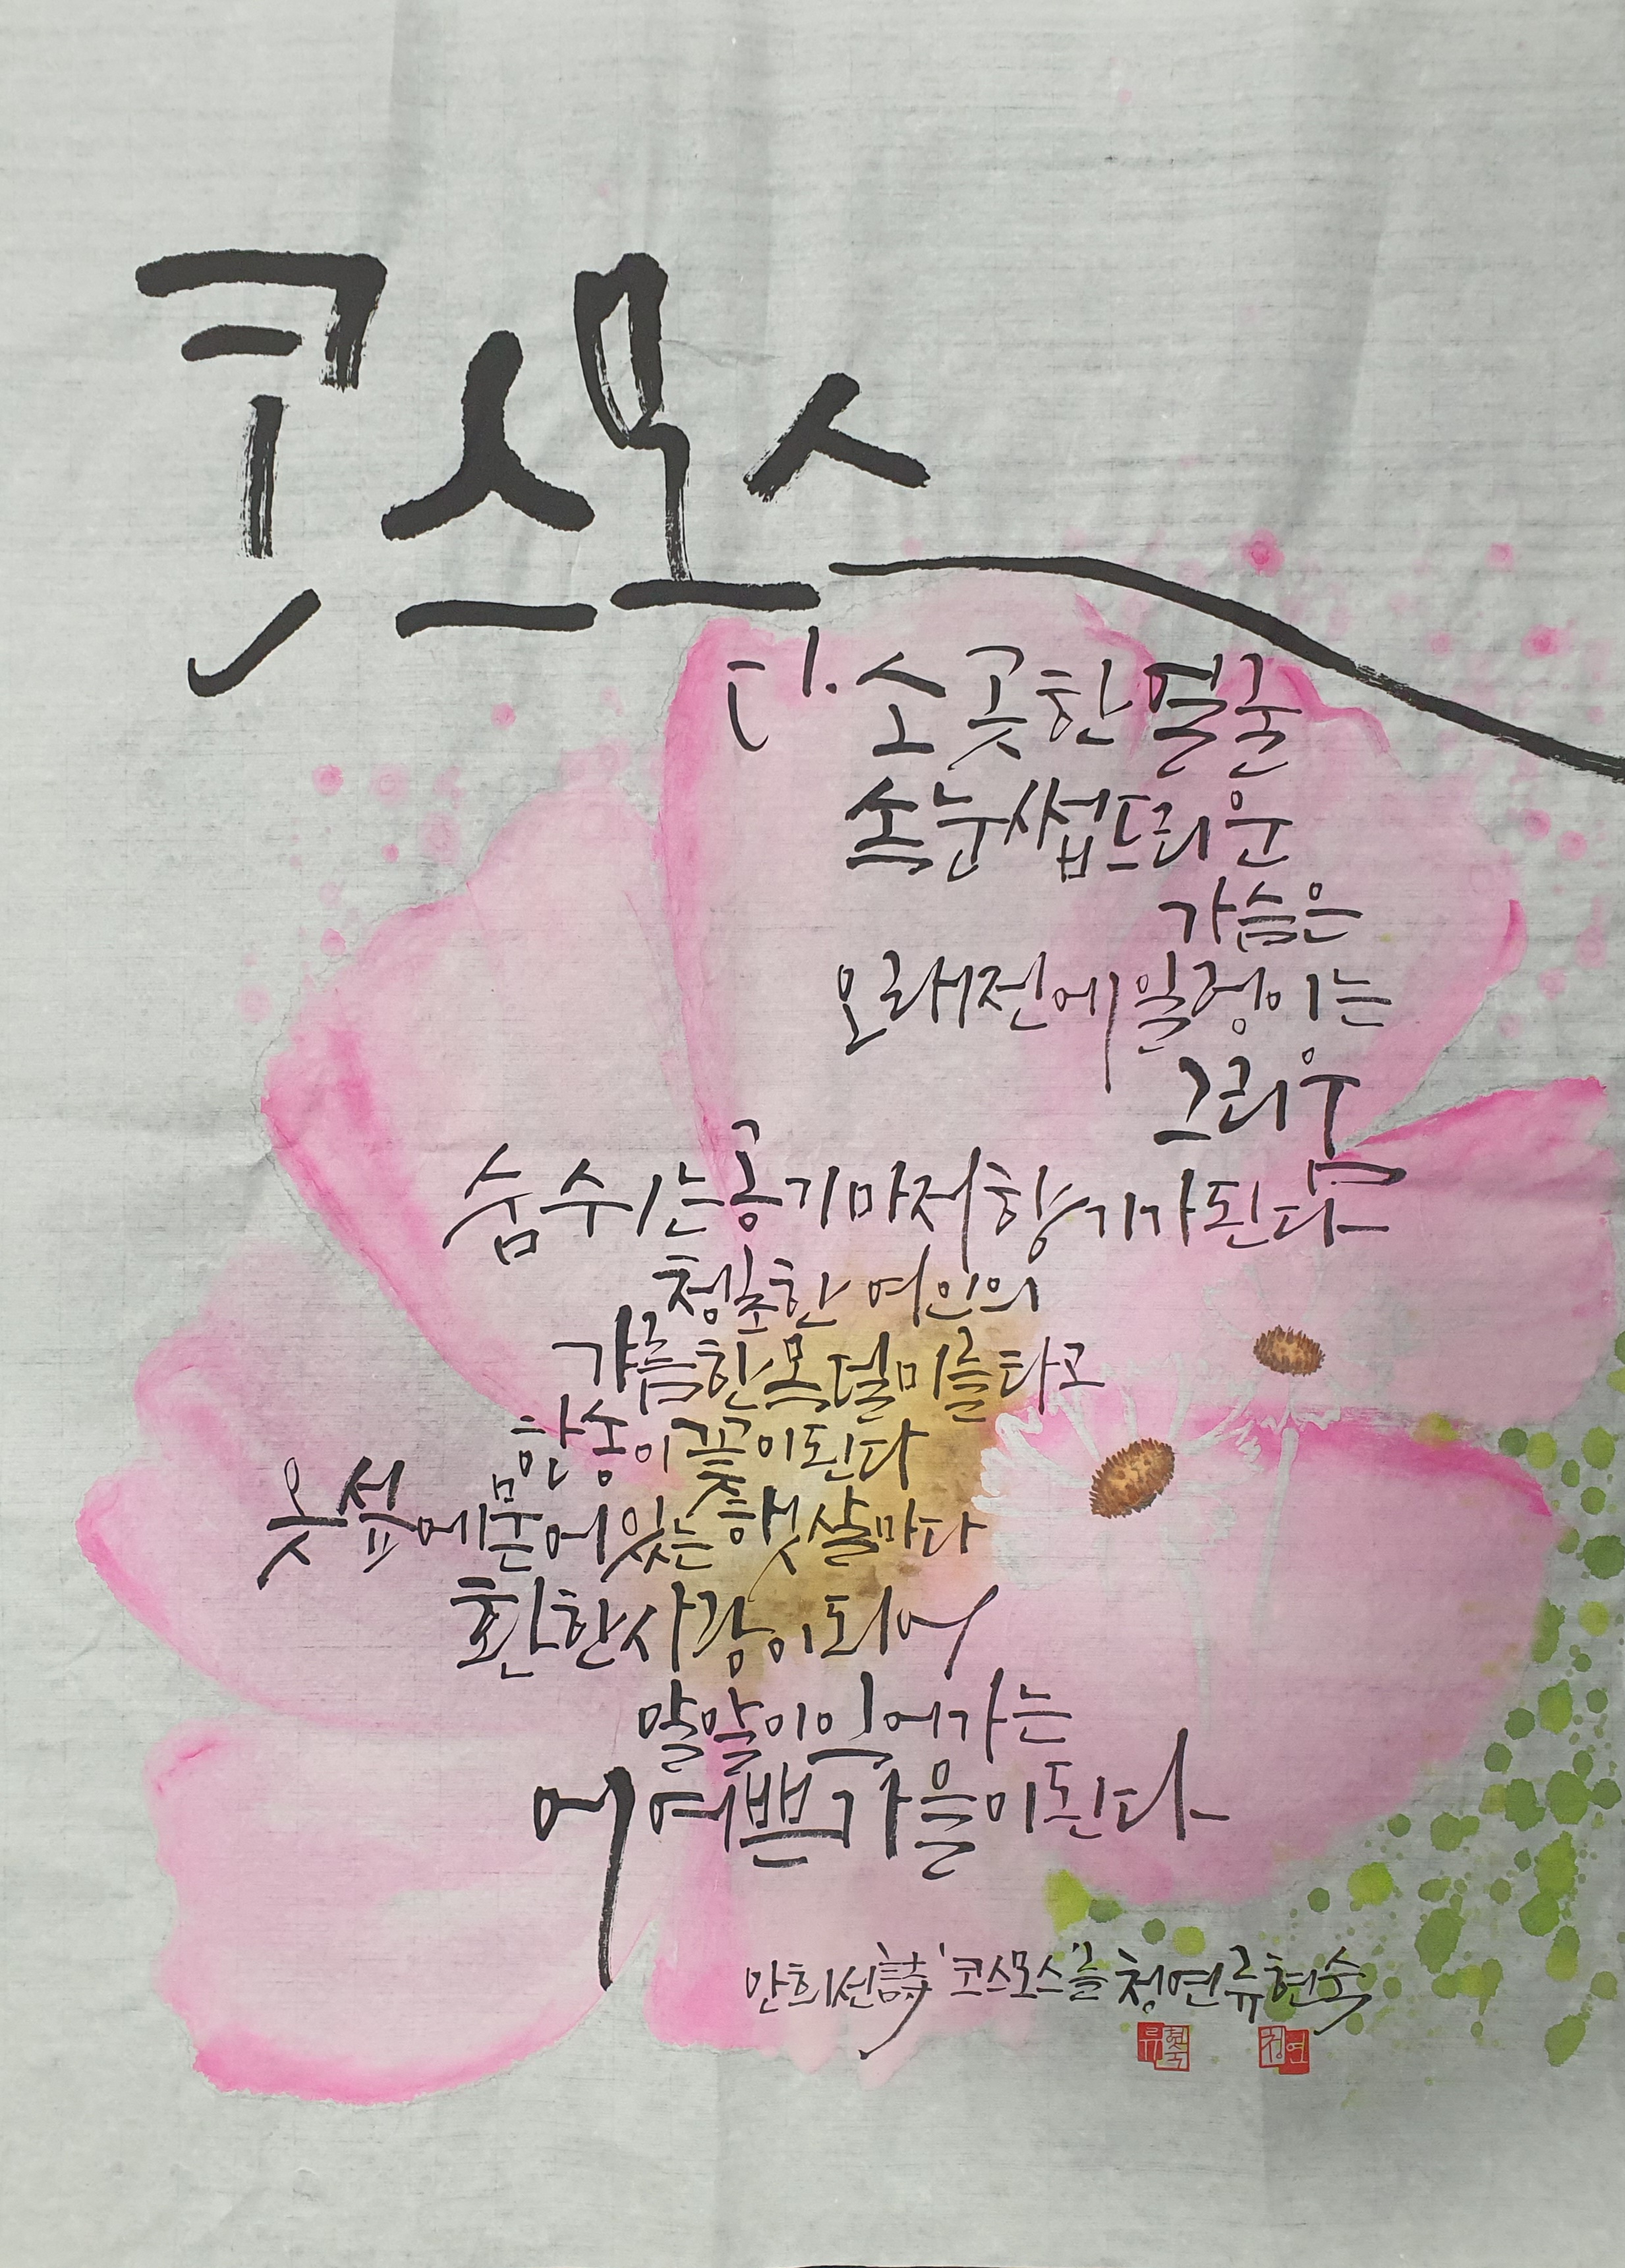 코스모스
다소곳한 얼굴
속눈썹 드리운
가슴은
오래전에 일렁이는
그리움
숨 쉬는 공기마저 향기가 된다
청초한 여인의
갸름한 목덜미를 타고
한송이 꽃이 된다
옷섶에 묻어있는 햇살마다
환한 사랑이 되어
말말이 익어가는
어여쁜 가을이 된다
안희선 詩 '코스모스'를 청연 류현숙
류현숙 청연